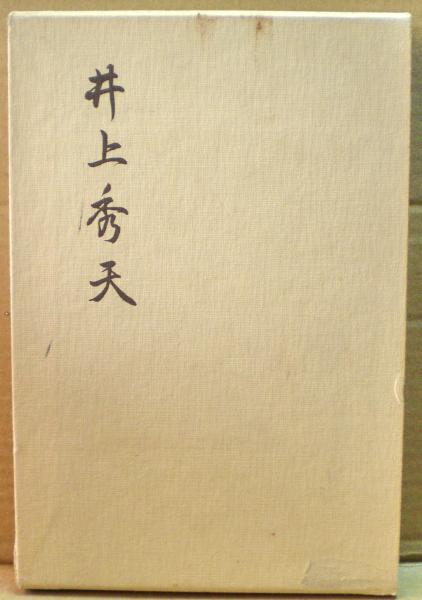 井上秀天